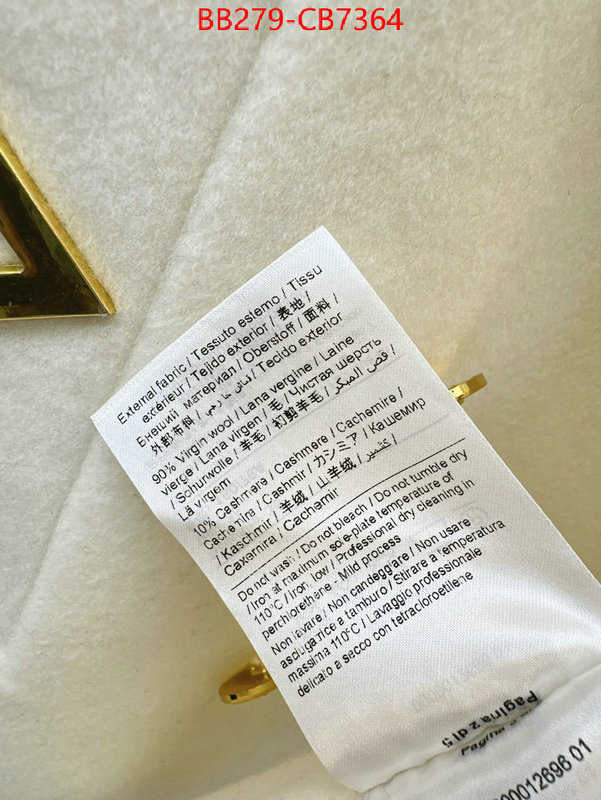 BB279-CB7364
External fabric / Tessuto esterno / Tissu
extérieur / Tejido exterior / 表地 /
Внешний материал / Oberstoff / 面料 /
外部布料 / Tecido exterior
90% Virgin wool / Lana vergine / Laine
vierge / Lana virgen / 毛 / Чистая шерсть
/ Schurwolle / 羊毛 / 初剪羊毛 /
Lã virgem
10% Cashmere / Cashmere / Cachemire /
Cachemira / Cashmir / カシミア / Кашемир
/ Kaschmir / 羊绒 / 山羊絨 / كشمير /
Caxemira / Cachemir
Do not wash / Do not bleach / Do not tumble dry
/ Iron at maximum sole-plate temperature of
110°C / Iron, low / Professional dry cleaning in
perchlorethane - Mild process
Non lavare / Non candeggiare / Non usare
asciugatrice a tamburo / Stirare a temperatura
massima 110°C / Lavaggio professionale
delicato a secco con tetracloroetilene
Pagina 2 di 5
00012696 01